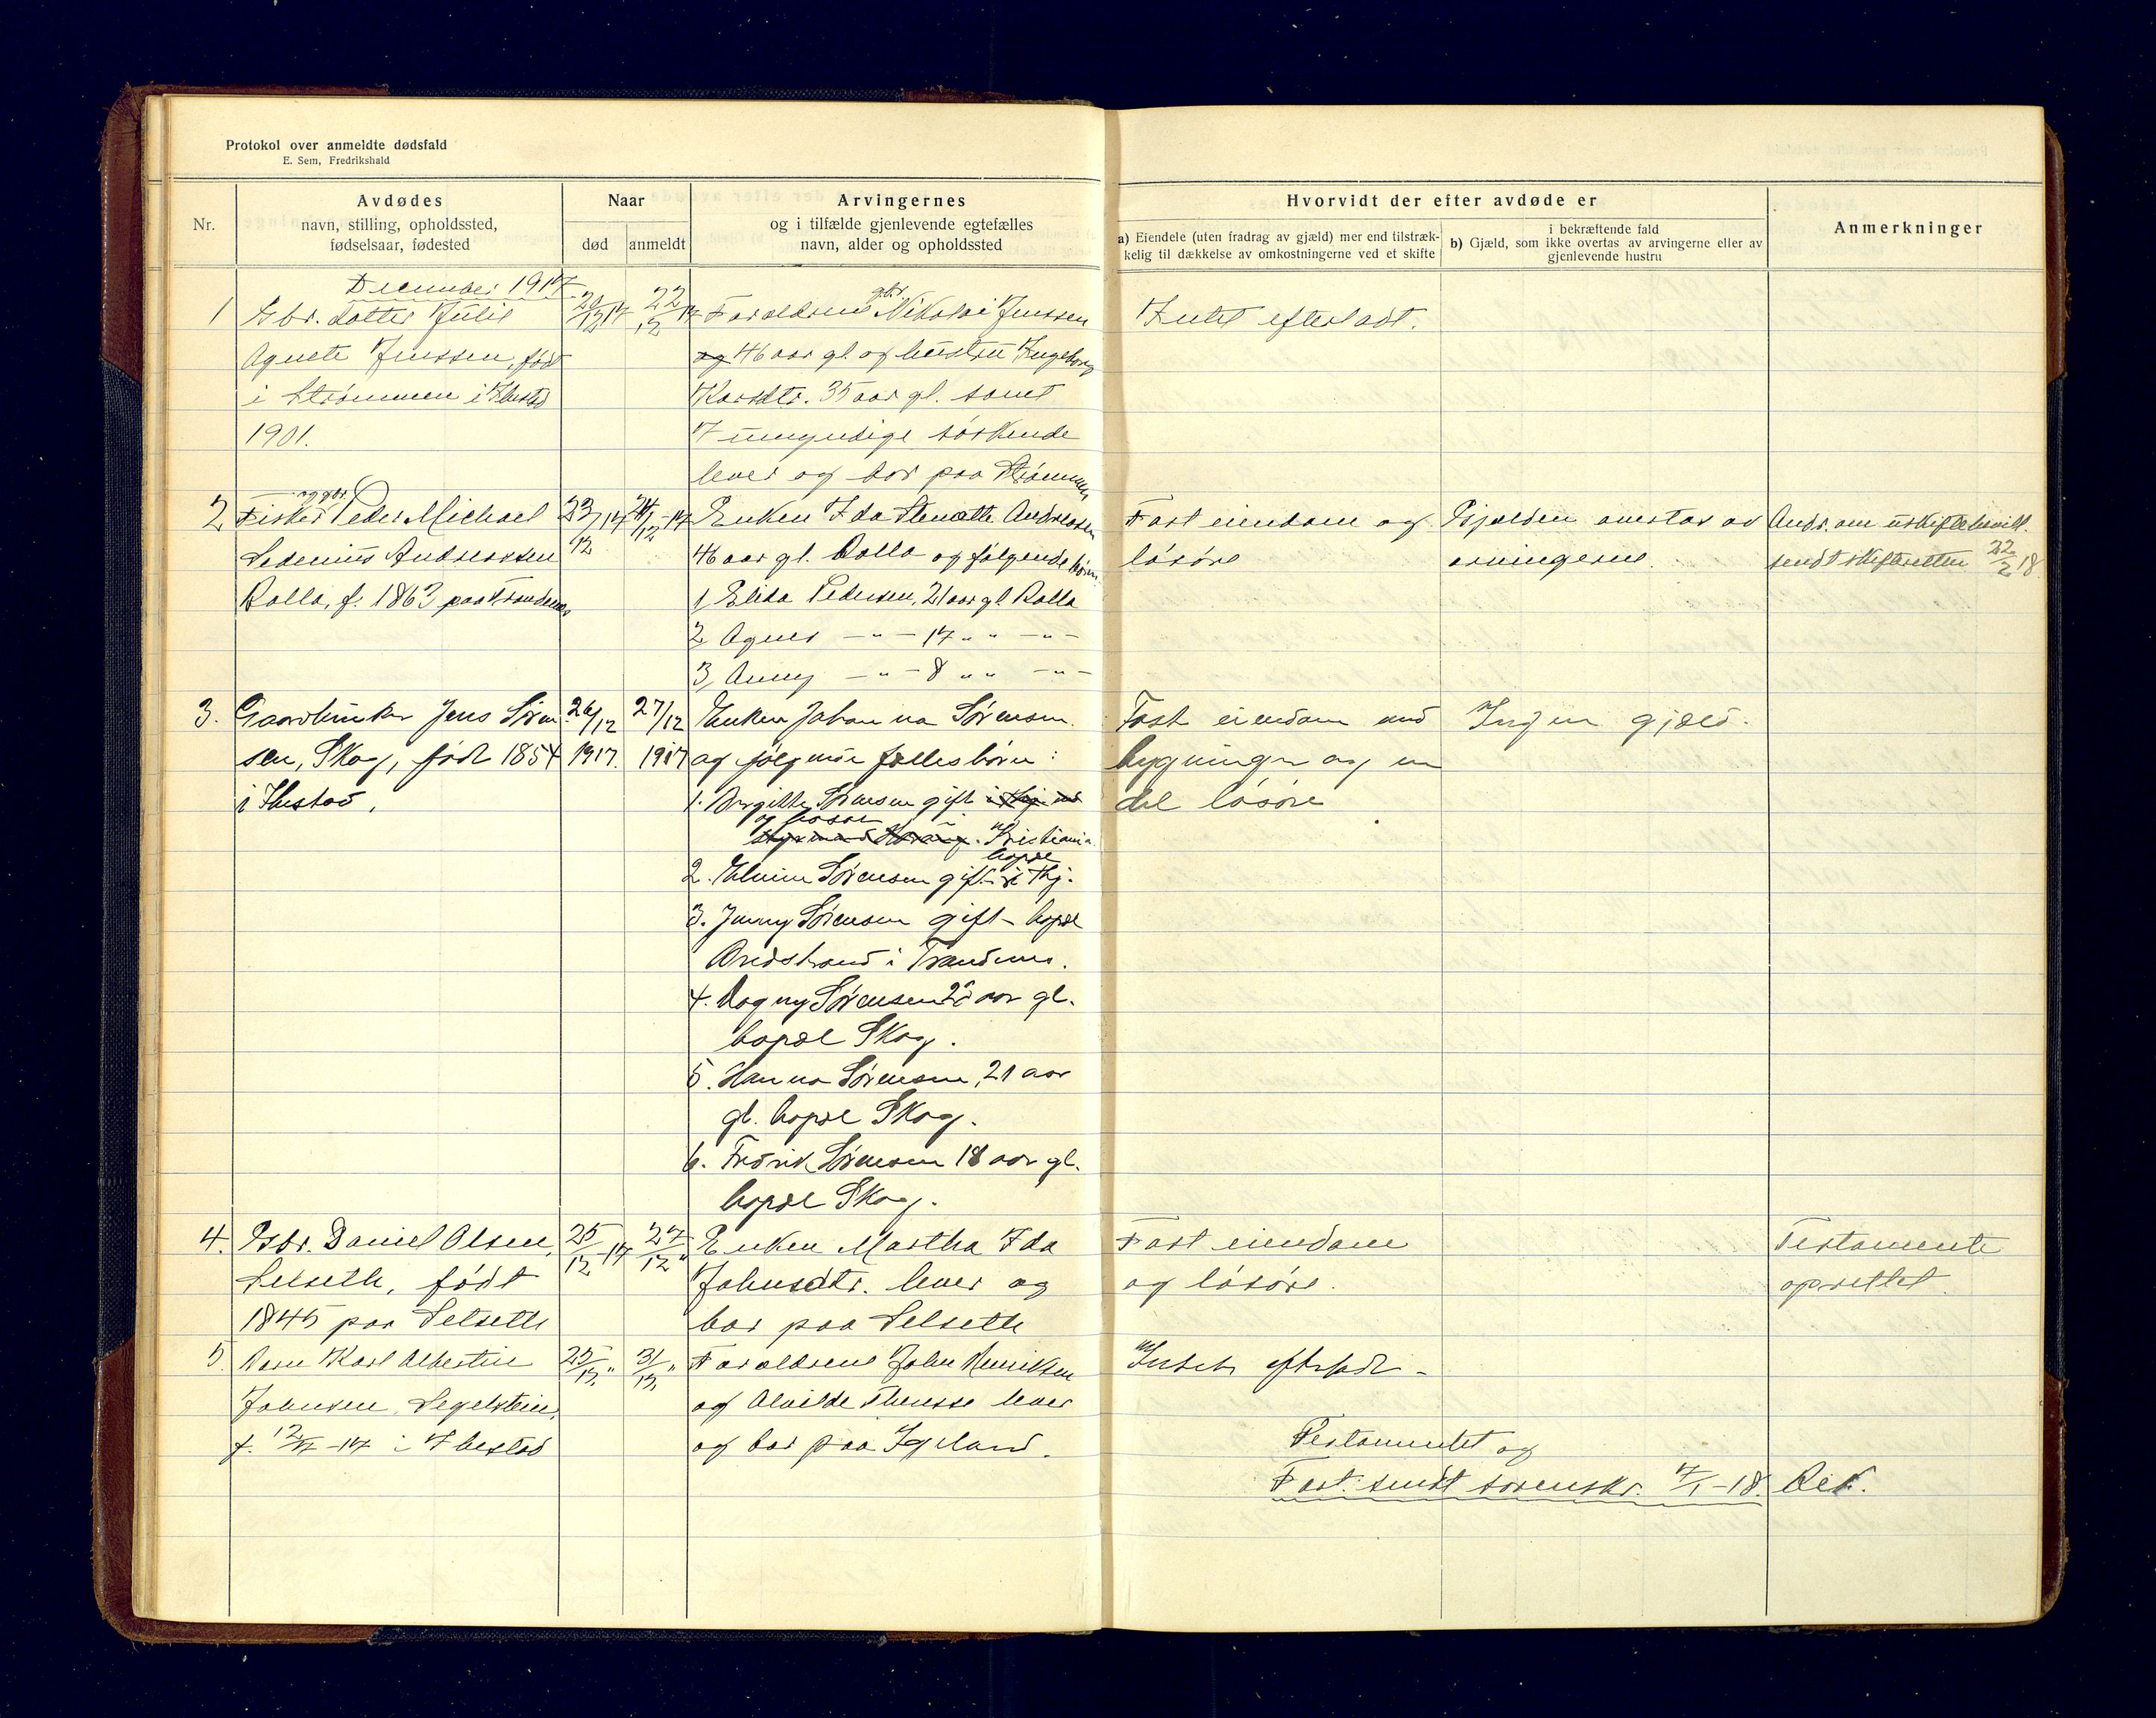 Protokol over anmeldte dødsfald
E. Sem, Fredrikshald
Nr.
Avdødes
navn, stilling, opholdssted,
fødselsaar, fødested
Naar
død
anmeldt
Arvingernes
og i tilfælde gjenlevende egtefælles
navn, alder og opholdssted
Hvorvidt der efter avdøde er
a) Eiendele (uten fradrag av gjæld) mer end tilstræk-
kelig til dækkelse av omkostningerne ved et skifte
i bekræftende fald
b) Gjæld, som ikke overtas av arvingerne eller av
gjenlevende hustru
Anmerkninger
December 1917
1
Gbr. datter Julie
Agnete Jenssen, født
i Strømmen i Ibestad
1901.
20/12 17
22/12 17
gbr.
Forældrene Nikolai Jenssen
og 46 aar gl. og hustru Ingeborg
Karsdtr. 35 aar gl. samt
7 umyndige søskende
lever og bor paa Strømmen
Intet efterladt.
2
og gbr.
Fisker Peder Michael
Sedenius Andreassen
Rolla, f. 1863 paa Trondenes
23/12 17
24/12-17
Enken Ida Andreasen
46 aar gl. Rolla og følgende børn
1, Elida Pedersen, 21 aar gl. Rolla
2, Agnes — " — 17 " " — " —
3, Anny — " — 8 " " — " —
Fast eiendom og
løsøre
Gjælden overtas av
arvingerne.
Andr. om uskiftebevill.
sendt skifteretten 22/2 18
3.
Gaardbruker Jens Søren-
sen, Skog, født 1854
i Ibestad.
26/12
1917.
27/12
1917
Enken Johanna Sørensen.
og følgende fællesbørn:
1. Birgitte Sørensen gift
og bosat i Kristiania.
bopæl
2. Elvine Sørensen gift
3. Jenny Sørensen gift - bopæl
Bredstrand i Trondenes.
4. Dagny Sørensen 25 aar gl.
bopæl Skog.
5. Hanna Sørensen, 21 aar
gl. bopæl Skog.
6. Fredrik Sørensen 18 aar gl.
bopæl Skog.
Fast eiendom med
bygninger og en
del løsøre
Ingen gjæld.
4.
Gbr. Daniel Olsen,
Selseth, født
1845 paa Selseth
25/12-17
27/12 "
Enken Martha Ida
Johnsdtr. lever og
bor paa Selseth
Fast eiendom
og løsøre.
Testamente
oprettet.
5.
Barn Karl Albertin
Johnsen, Segelstein,
f. 12/7-17 i Ibestad
25/12 "
31/12 "
Forældrene John Henriksen
og Alvilde Therese lever
og bor paa Igeland.
Intet efterladt -
Testamentet og
Fort. sendt sorenskr. 7/1-18.